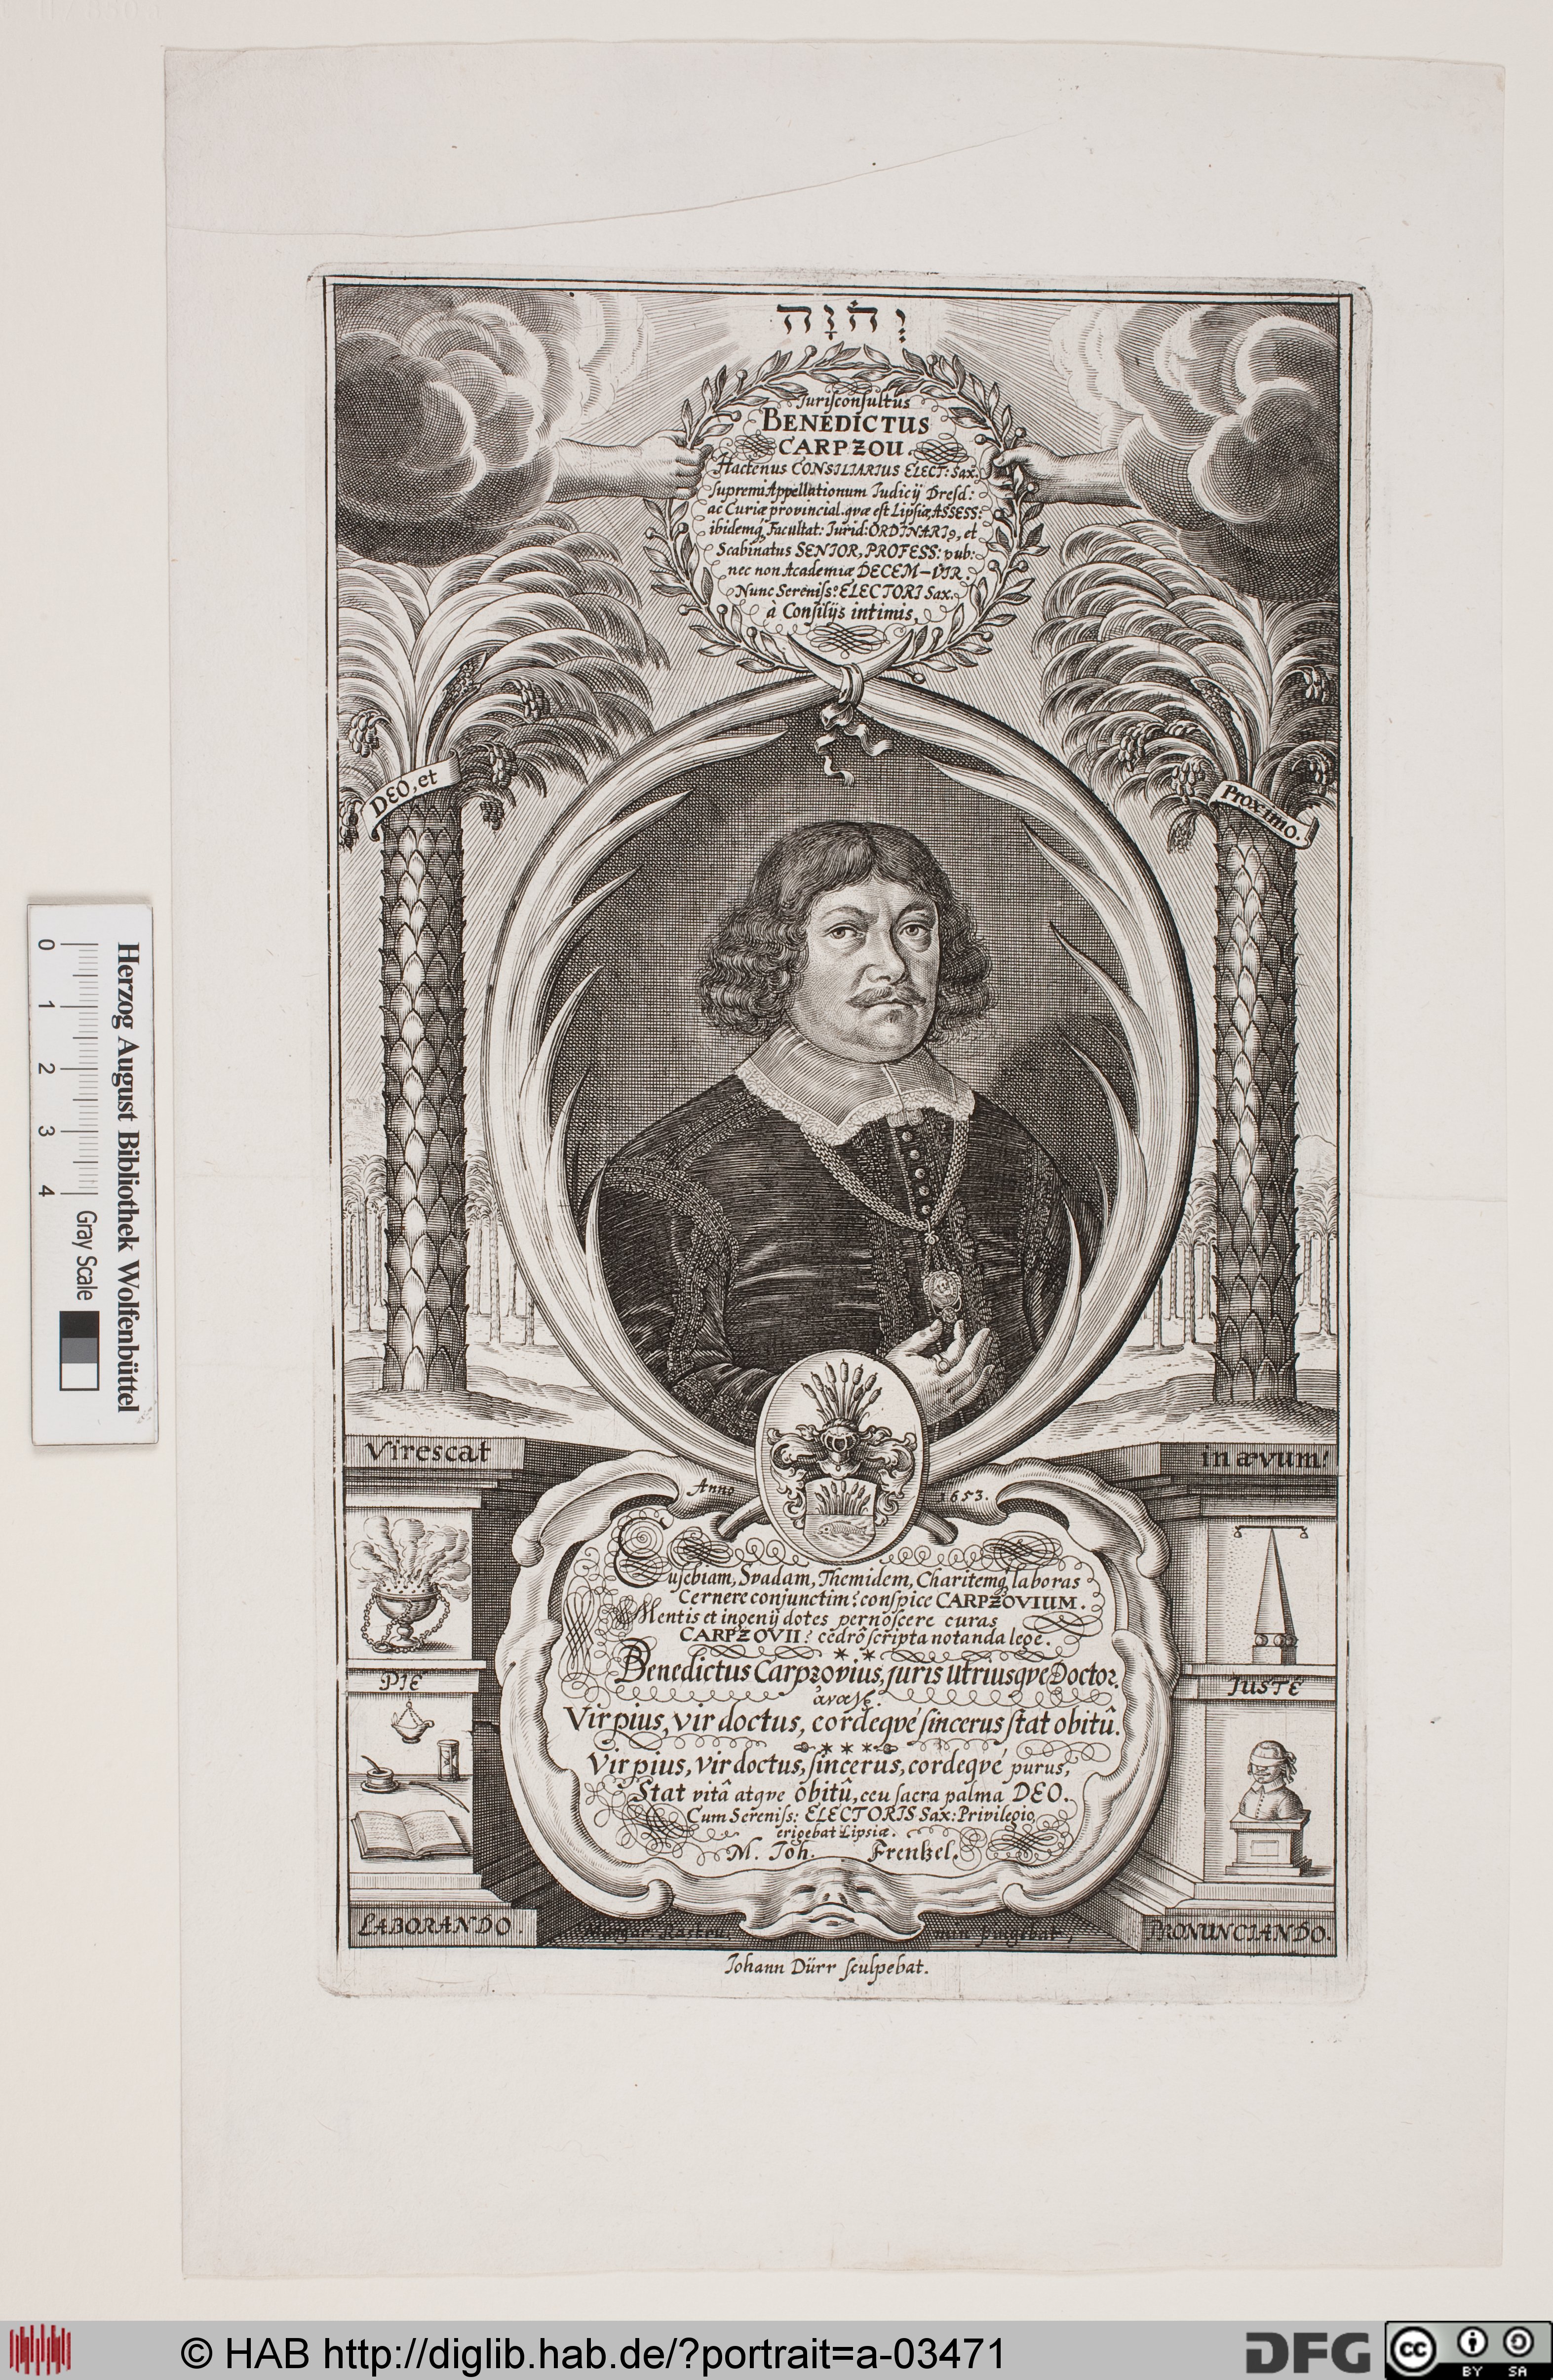 יְהֹוָה
Jurisconsultus
BENEDICTUS
CARPZOU.
Hactenus CONSILIARIUS ELECT: Sax.
supremi Appellationum Judicij Dresd:
ac Curiæ provincial. qvæ est Lipsiæ ASSESS:
ibidemq́; Facultat: Jurid: ORDINARI9, et
Scabinatus SENIOR, PROFESS: pub:
nec non Academiæ DECEM-VIR.
Nunc Sereniss.º ELECTORI Sax.
à Consilijs intimis.
DEO, et
Proximo.
Virescat
in ævum!
Anno 1653.
Eusebiam, Svadam, Themidem, Charitemq́; laboras
Cernere conjunctim? conspice CARPZOVIUM.
Mentis et ingenij dotes pernoscere curas
CARPZOVII? cedrô scripta notanda lege.
Benedictus Carpzovius, juris utriusqve Doctor,
Vir pius, vir doctus, cordeqvé sincerus stat obitû.
Vir pius, vir doctus, sincerus, cordeqvé purus,
Stat vitâ atqve obitû, ceu sacra palma DEO.
Cum Sereniss: ELECTORIS Sax: Privilegio
erigebat Lipsiæ.
M. Joh. Frenzel.
PIE
JUSTE
LABORANDO.
PRONUNCIANDO.
Johann Dürr sculpebat.
Herzog August Bibliothek Wolfenbüttel
0 1 2 3 4 Gray Scale
© HAB http://diglib.hab.de/?portrait=a-03471
DFG
cc BY SA